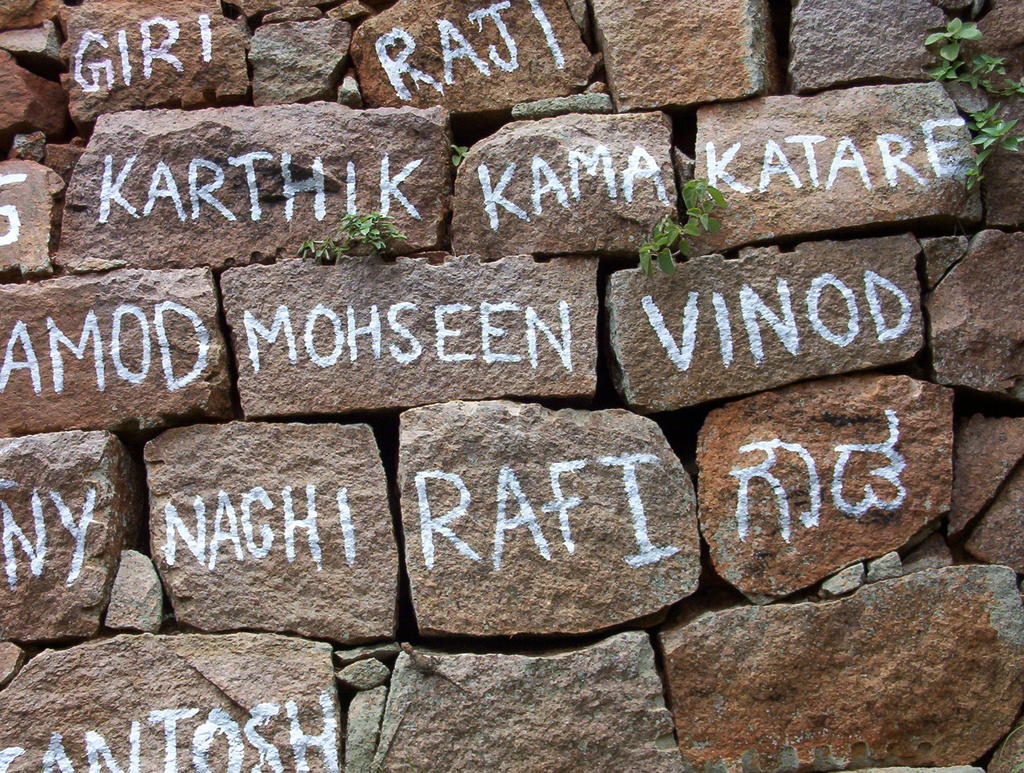 GIRI RAJI
KARTHIK KAMA KATARE
AMOD MOHSEEN VINOD
NY NAGHI RAFI ಗಾಡ
SANTOSH